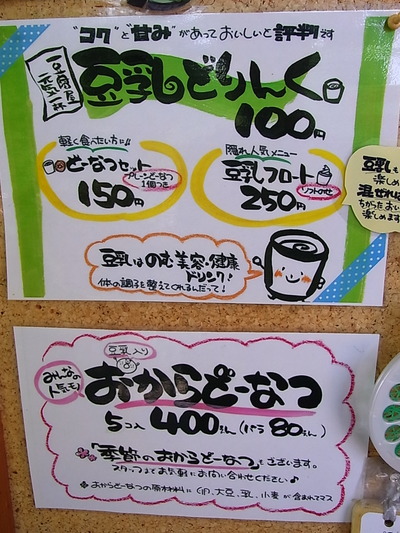 "コク"と"甘み"があっておいしいと評判です
豆腐屋
元気一杯
豆乳どりんく
100円
軽く食べたい方に!!
どーなつセット
プレーンどーなつ
1個つき
150円
隠れ人気メニュー
豆乳フロート
ソフトのせ
250円
豆乳も
楽しめ
混ぜれば
ちがったおい
楽しめます
豆乳はのむ美容・健康
ドリンク!
体の調子を整えてくれるんだって!
豆乳入り
みんなの
人気モノ
おからどーなつ
5コ入 400えん(バラ80えん)
「季節のおからどーなつ」もございます。
スタッフまでお気軽にお問い合わせください♪
おからどーなつの原材料に卵、大豆、乳、小麦が含まれてマス